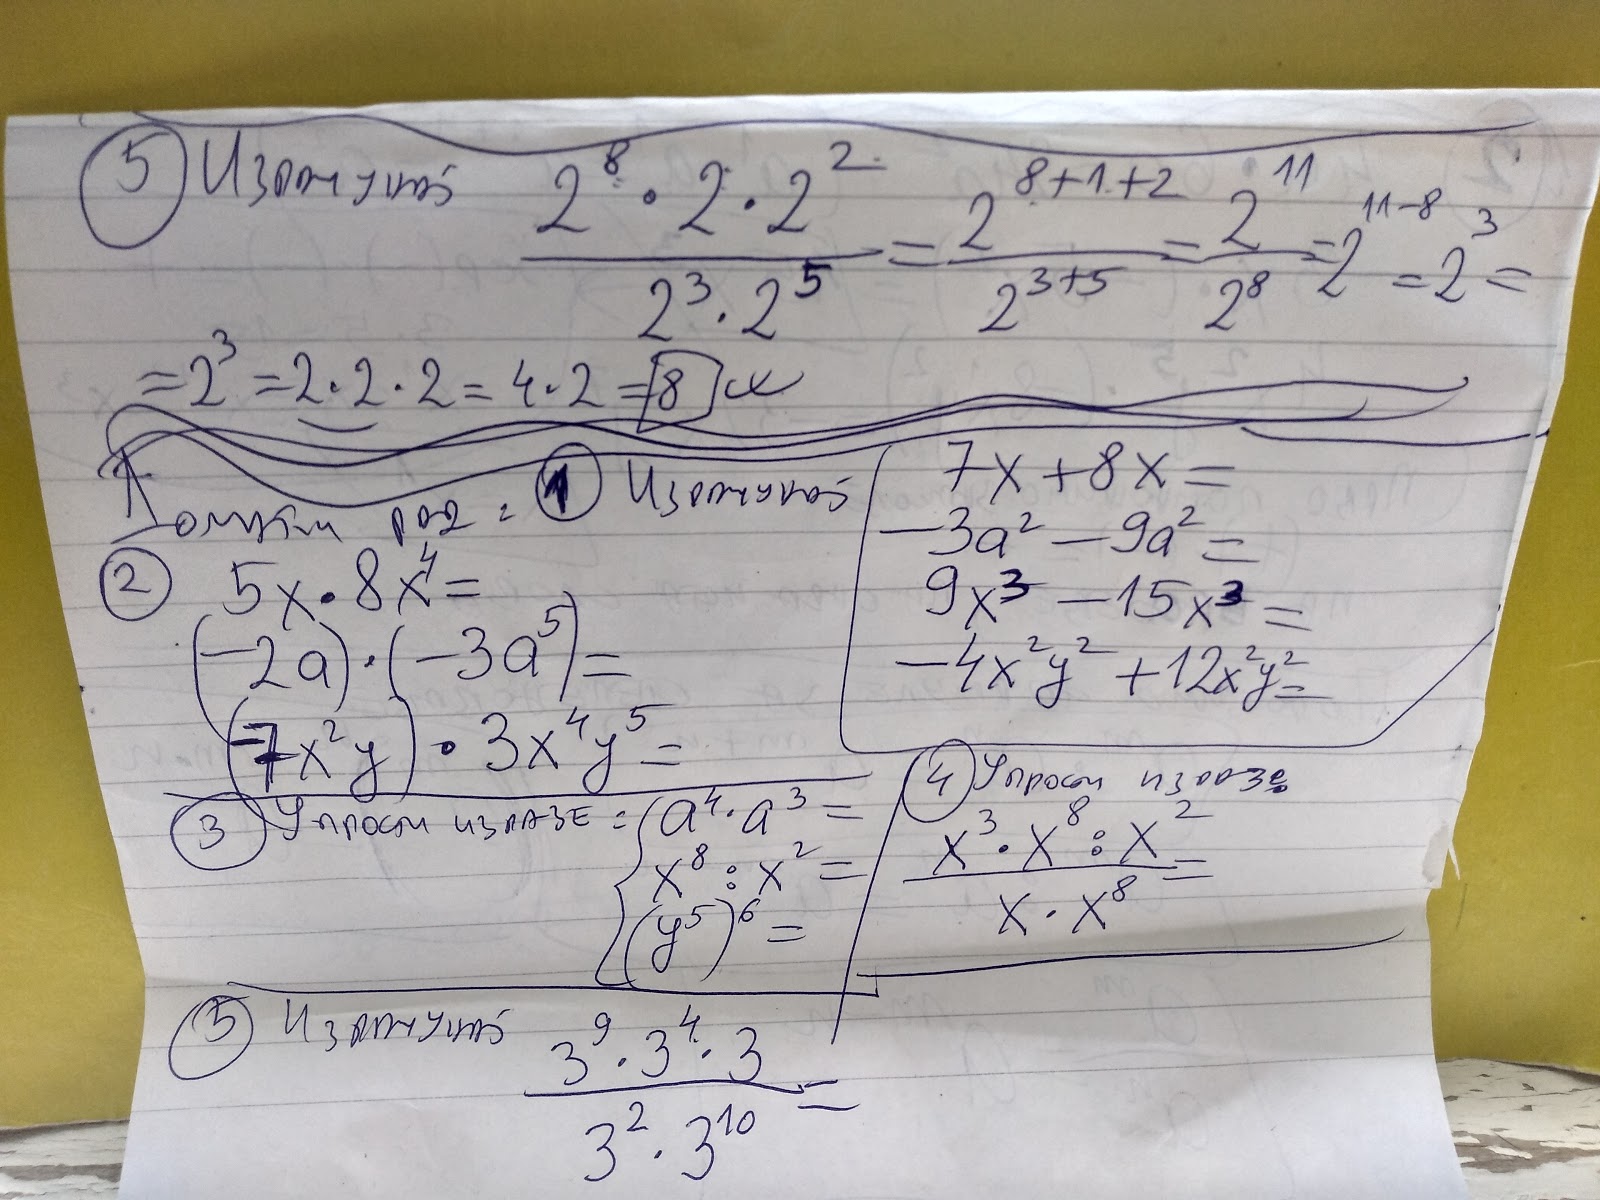 5 Израчунај 2⁸ · 2 · 2² / 2³ · 2⁵ = 2⁸⁺¹⁺² / 2³⁺⁵ = 2¹¹ / 2⁸ = 2¹¹⁻⁸ = 2³ =
= 2³ = 2 · 2 · 2 = 4 · 2 = 8
Домаћи рад: 1 Израчунај
7x + 8x =
-3a² - 9a² =
9x³ - 15x³ =
-4x²y² + 12x²y² =
2 5x · 8x⁴ =
(-2a) · (-3a⁵) =
(-7x²y) · 3x⁴y⁵ =
3 Упрости изразе: a⁴ · a³ =
x⁸ : x² =
(y⁵)⁶ =
4 Упрости изразе
x³ · x⁸ : x² / x · x⁸ =
5 Израчунај 3⁹ · 3⁴ · 3 / 3² · 3¹⁰ =